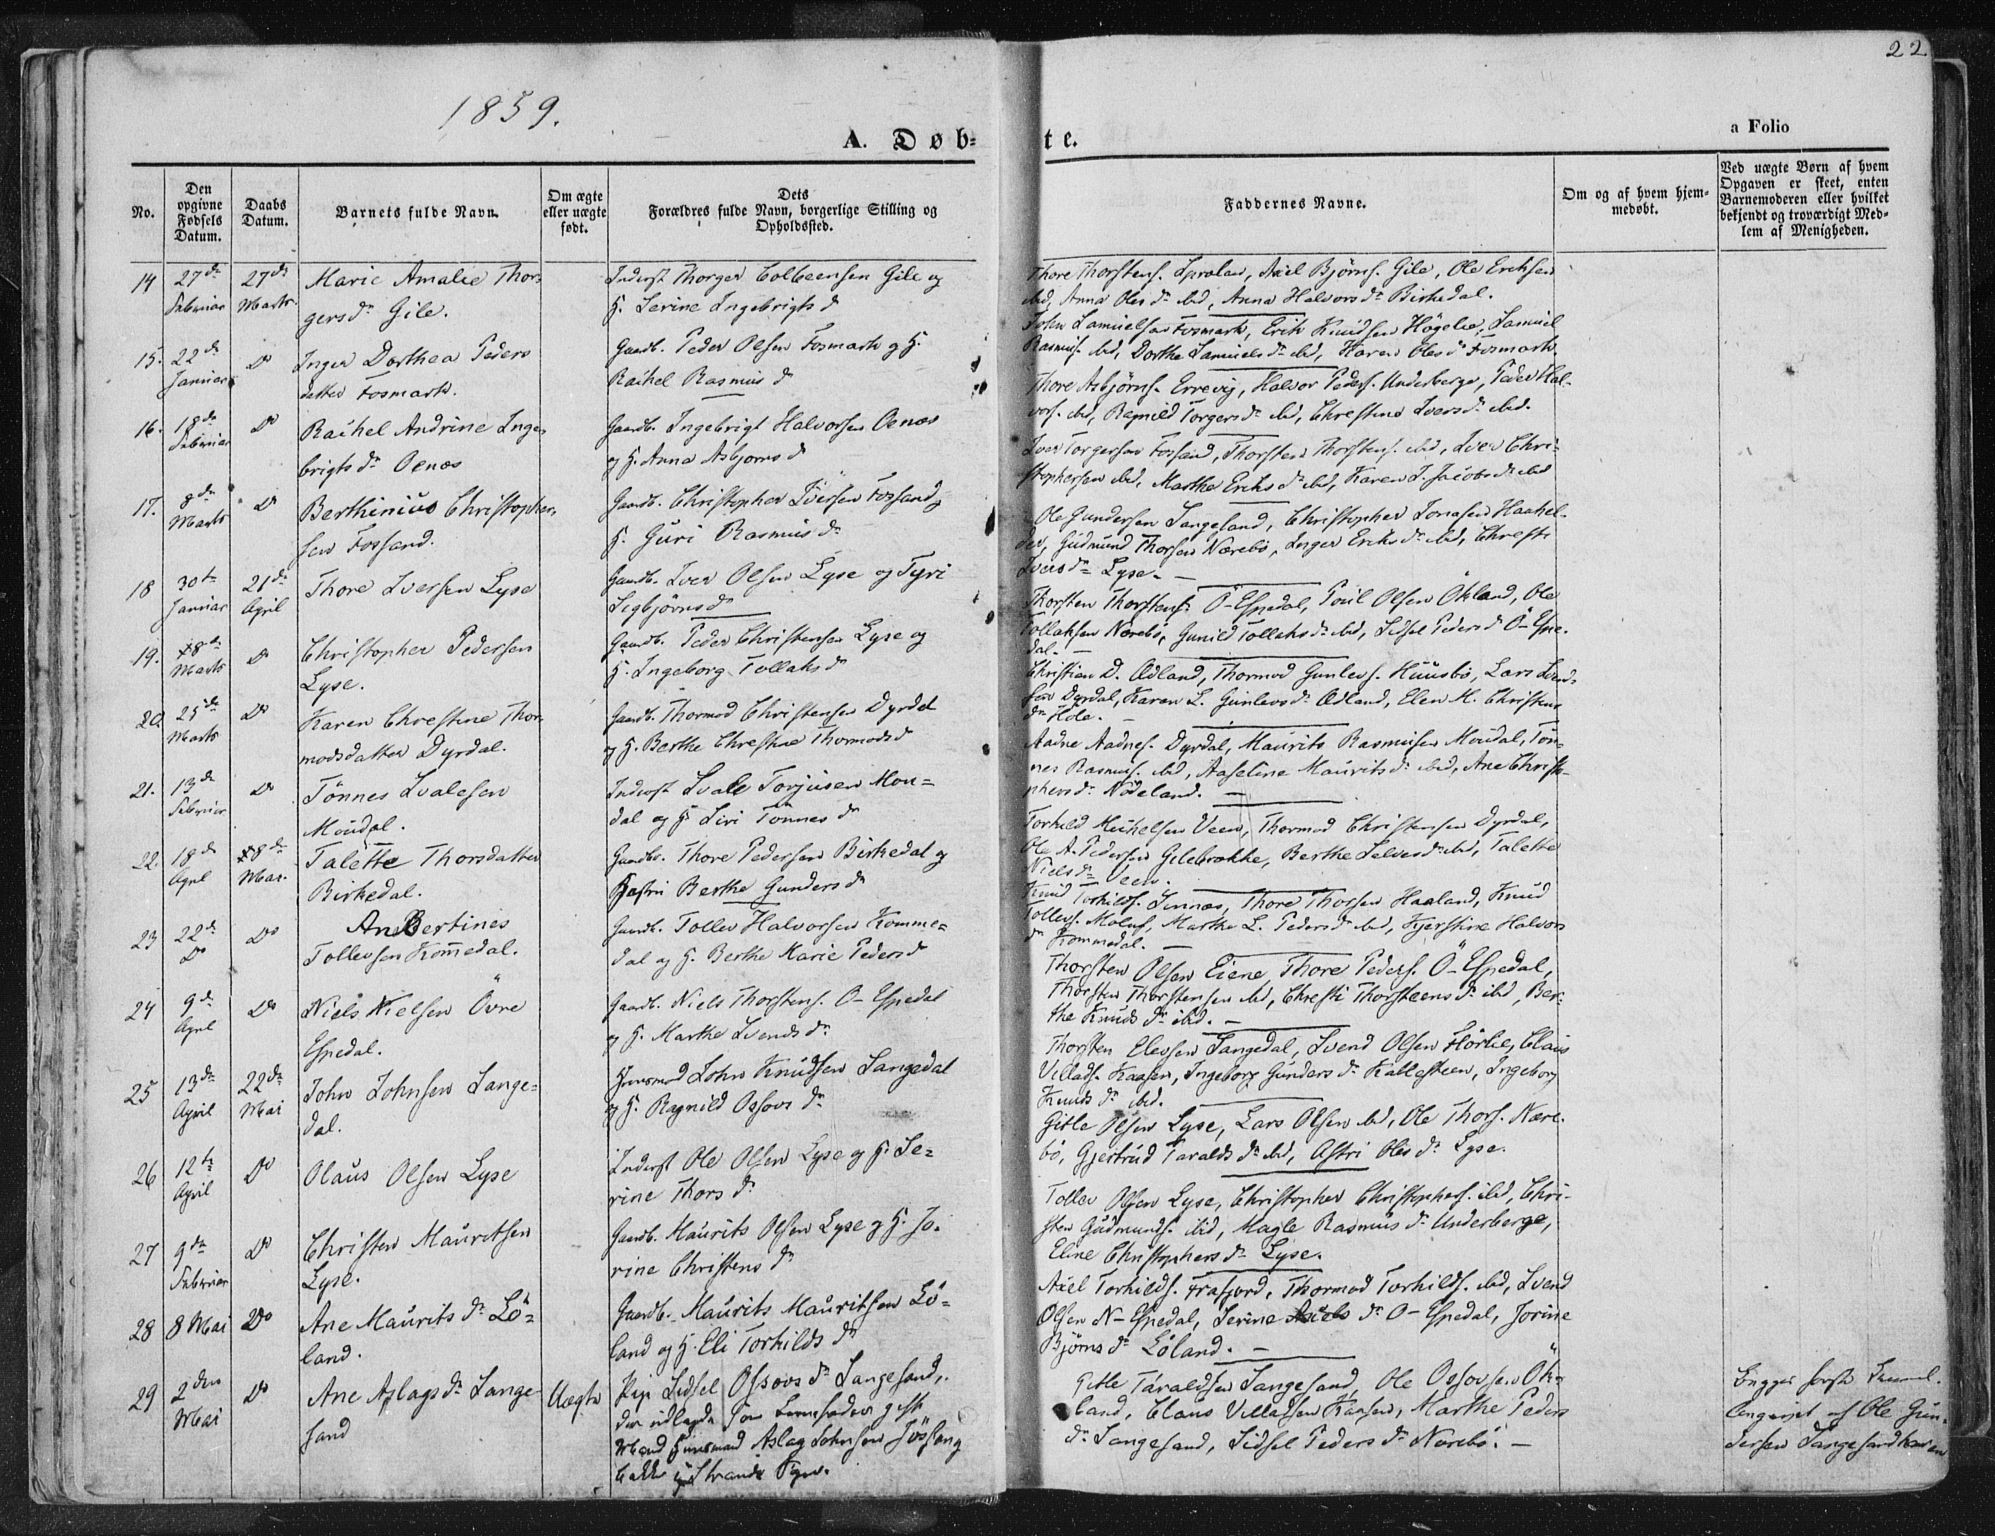 22
1859.
A. Døb-
te.
a Folio
No.
Den opgivne Fødsels Datum.
Daabs Datum.
Barnets fulde Navn.
Om ægte eller uægte født.
Dets Forældres fulde Navn, borgerlige Stilling og Opholdssted.
Faddernes Navne.
Om og af hvem hjemmedøbt.
Ved uægte Børn af hvem Opgaven er skeet, enten Barnemoderen eller hvilket bekjendt og troværdigt Medlem af Menigheden.
14 27de Februar 27de Marts
Marie Amalie Thor-
gersdr Gile.
Inderst Thorger Colbeensen Gile og
H. Serine Ingebrigts dr
Thore Thorstens. Axel Bjørns. Gile, Ole Eriksen
ibd, Anna Oles dr ibd, Anna Halvors dr Birkedal.
15. 22de Januar Do
Inger Dorthea Peders
datter Fosmark.
Gaardb. Peder Olsen Fosmark og H.
Rachel Rasmus dr
John Samuelsen Fosmark, Erik Knudsen Høgelie, Samuel
Rasmus. ibd, Dorthe Samuels dr ibd, Karen Oles dr Fosmark.
16. 18de Februar Do
Rachel Andrine Inge-
brigts dr Oenæs
Gaardb. Ingebrigt Halvorsen Oenæs
og H. Anna Asbjørns dr
Thore Asbjørns. Errevig, Halvor Peders. Underberge, Peder Hal-
vors. ibd, Ragnild Torgers dr ibd, Chrestine Ivers dr ibd.
17. 8de Marts Do
Berthinius Christopher-
sen Fossand.
Gaardb. Christopher Iversen Fossand og
H. Guri Rasmus dr
Iver Torgersen Fossand, Thorsten Thorstens. ibd, Iver Chri-
stophersen ibd, Marthe Eriks dr ibd, Karen J. Jacobs dr ibd
18 30te Januar 21de April
Thore Iversen Lyse
Gaardb. Iver Olsen Lyse og Tyri
Sigbjørns dr
Ole Gundersen Sangesand, Christopher Jonasen Haahel-
ler, Gudmund Thorsen Nærebø, Inger Eriks dr ibd, Chresti
Ivers dr Lyse. —
19. 8de Marts Do
Christopher Pedersen
Lyse.
Gaardb. Peder Christensen Lyse og
H. Ingeborg Tollaks dr
Thorsten Thorstens. Ö-Espedal, Poul Olsen Økland, Ole
Tollaksen Nærebø, Gunild Tollaks dr ibd, Sidsel Peders dr Ö-Espe-
dal. —
20. 25de Marts Do
Karen Chrestine Thor-
modsdatter Dyrdal.
Gaardb. Thormod Christensen Dyrdal
og H. Berthe Chrestine Thormods dr
Christian D. Ædland, Thormod Gunlevs. Huusbø, Lars Svend-
sen Dyrdal, Karen L. Gunlevs dr Ædland, Elen M. Christens
dr Høle. —
21. 13de Februar Do
Tønnes Ivalesen
Moudal.
Inderst Ivale Torjusen Mou-
dal og H Siri Tønnes dr
Aadne Aadnes. Dyrdal, Maurits Rasmusen Moudal, Tøn-
nes Rasmus. ibd, Aaseline Maurits dr ibd, Ane Christo-
phers dr Nödeland. —
22. 18de April 8de Mai.
Talette Thorsdatter
Birkedal.
Gaardb. Thore Pedersen Birkedal og
Hustru Berthe Gunders dr
Torkild Michelsen Veen, Thormod Christensen Dyrdal,
Ole A. Pedersen Gilebrække, Berthe Selves dr ibd, Talette
Niels dr Veen.
23 22de Do Do
An Bertines
Tollevsen Komedal.
Gaardb. Tollev Halvorsen Komme-
dal og H. Berthe Marie Peders dr
Knud Torkilds. Sinnæs, Thore Thorsen Haaland, Knud
Tollevs. Moluf, Marthe L. Peders dr ibd, Kjerstine Halvors
dr Kommedal. —
24 9de April Do
Niels Nielsen Övre
Espedal.
Gaardb. Niels Thorstens. Ö-Espedal
og H. Marthe Svends dr
Thorsten Olsen Eiene, Thore Peders. Ö-Espedal,
Thorsten Thorstensen ibd, Chresti Thorsteens dr ibid, Ber-
the Knuds dr ibid. —
25 13de April 22de Mai
John Johnsen Sange-
dal.
Huusmand John Knudsen Sangedal
og H. Ragnild Ossovs dr
Thorsten Elevsen Sangedal, Svend Olsen Hørlie, Claus
Villads. Kaasen, Ingeborg Gunders dr Kablesteen, Ingeborg
Knuds dr ibd.
26 12te April Do
Olaus Olsen Lyse
Inderst Ole Olsen Lyse og H. Se-
rine Thors dr
Gitle Olsen Lyse, Lars Olsen ibd, Ole Thors. Nære-
bø, Gjertrud Taralds dr ibd, Astri Oles dr Lyse.
27 9de Februar Do
Christen Mauritsen
Lyse.
Gaardb. Maurits Olsen Lyse og H. Jo-
rine Christens dr
Tollev Olsen Lyse, Christopher Christophers. ibd, Chri-
sten Gudmunds. ibid, Magle Rasmus dr Underberge,
Eline Christophers dr Lyse.
28 8 Mai Do
Ane Maurits dr Lö-
land.
Gaardb. Maurits Mauritsen Lö-
land og H. Eli Torkilds dr
Axel Torkilds. Frafjord, Thormod Torkilds. ibd, Svend
Olsen N-Espedal, Serine Axels dr Ö-Espedal, Jorine
Bjørns dr Löland. —
29 2den Mai Do
Ane Aslags dr Sange-
sand
Uægte
Pige Sidsel Ossovs dr Sangesand,
der udlagde som Barnefader gift
Mand Huusmand Aslag Johnsen Jössang
bakke i Strands Sogn.
Gitle Taraldsen Sangesand, Ole Ossovsen Øk-
land, Claus Villadsen Kaasen, Marthe Peders
dr Sangesand, Sidsel Peders dr Nærebø. —
Begges første
af Ole Gun-
dersen Sangesand